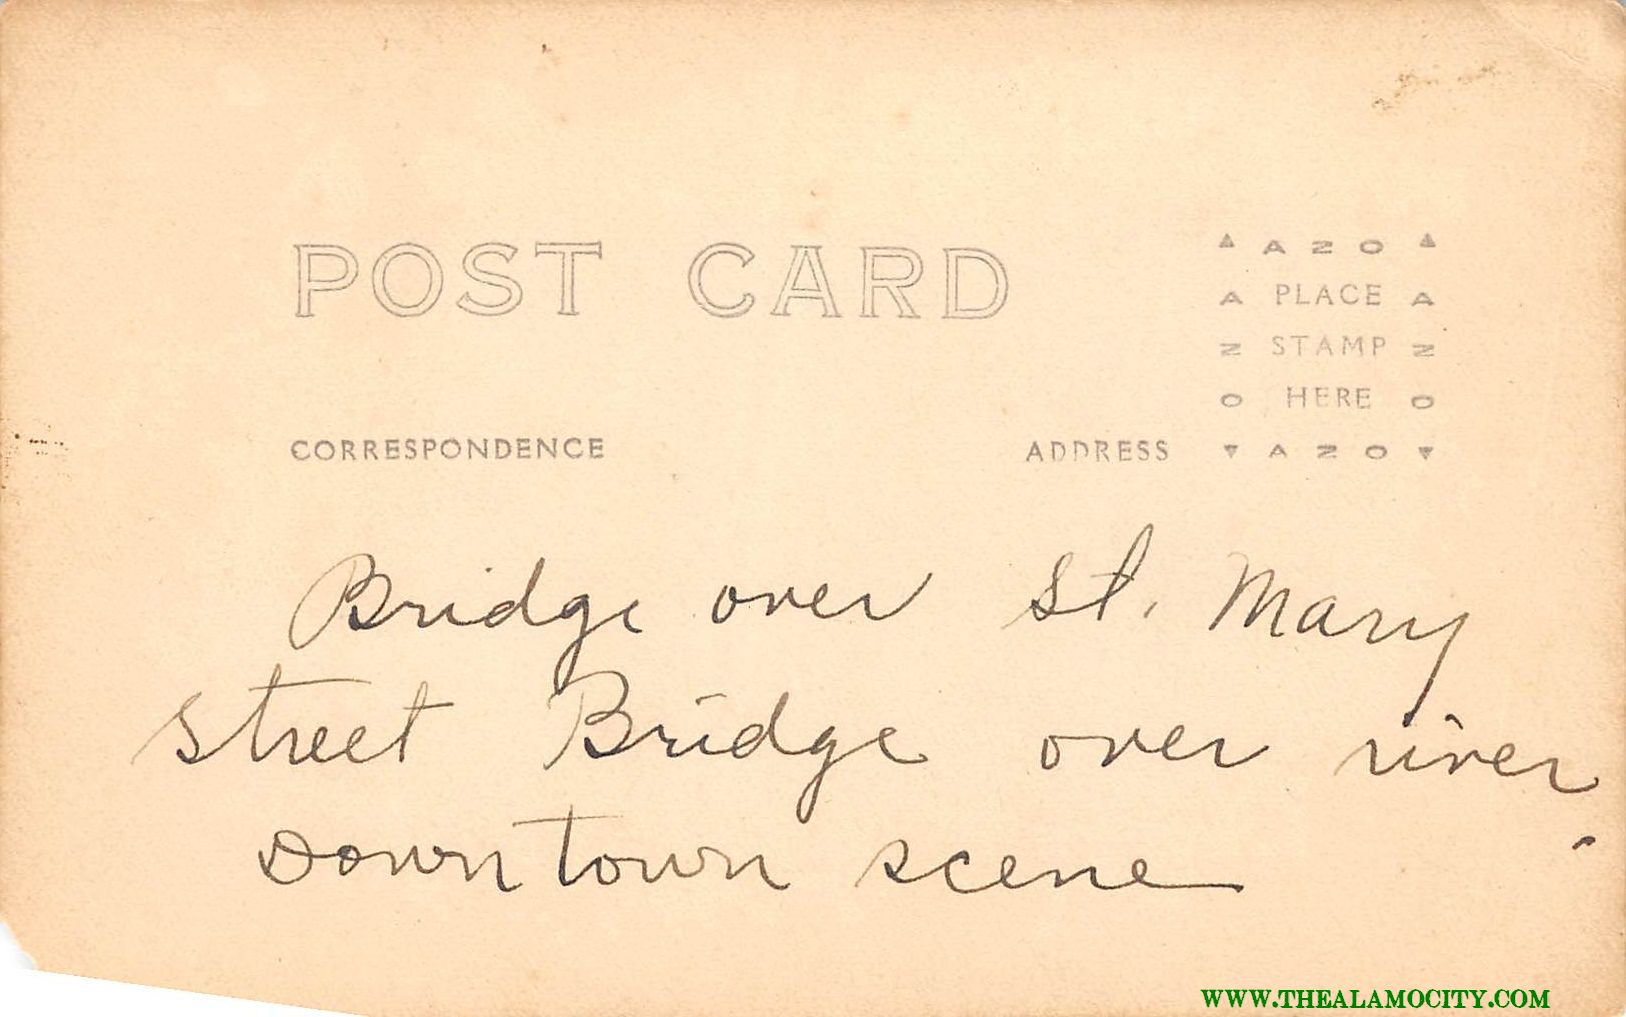 POST CARD
▲ AZO ▲
A PLACE A
N STAMP N
O HERE O
CORRESPONDENCE
ADDRESS
▼ AZO ▼
Bridge over St. Mary
street Bridge over river
Downtown scene
WWW.THEALAMOCITY.COM